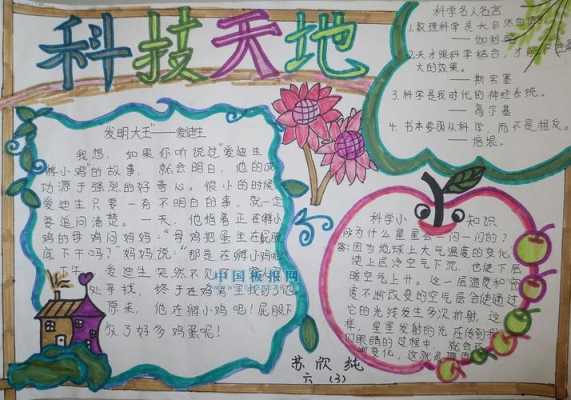 科技天地
发明大王"——爱迪生
我想，如果你听说过"爱迪生
孵小鸡"的故事，就会明白，他的成
功源于强烈的好奇心。很小的时候
爱迪生只要一有不明白的事，就一定
要追问清楚。一天，他指着正在孵小
鸡的母鸡问妈妈："母鸡把蛋坐在屁股
底下干吗？"妈妈说："那是在孵小鸡
爱迪生突然不见了
处寻找，终于在鸡窝里找到了他
原来，他在孵小鸡呢！屁股下
放了好多鸡蛋呢！
中国板报网
科学名人名言
1.数理科学是大自然
——伽利略
2.天才跟科学结合，才能
大的效果。
——斯宾塞
3.科学是我时代的神经系统。
——高尔基
4.书本要围从科学，而不是相反。
——培根。
科学小知识
问为什么星星会一闪一闪的？
答：因为地球上大气温度的变化
使上层冷空气下沉，也使下层
暖空气上升。这一层温度和密
度不断改变的空气层会使通过
它的光线发生多次折射，这
样，星星发射的光在传到我
们眼睛的过程中，就会
变化，这就
苏欣纯
六（3）